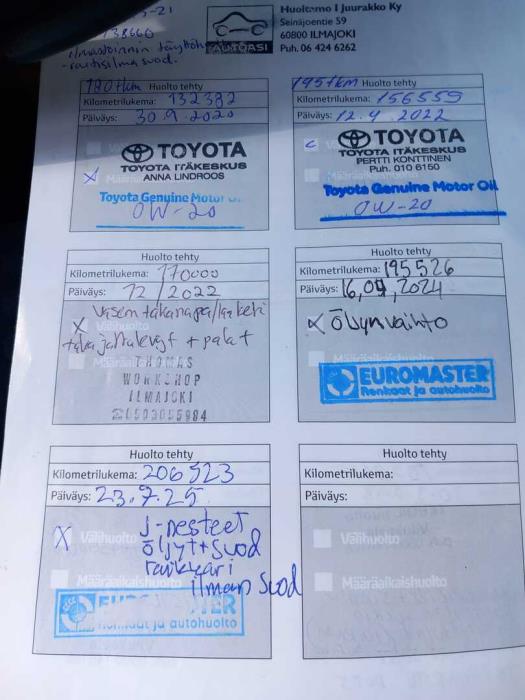 Huoltamo I Juurakko Ky
Seinäjoentie 59
60800 ILMAJOKI
Puh. 06 424 6262
AUTOASI
-21
138660
ilmastoinnin
-raitisilma suod.
Huolto tehty
Kilometrilukema: 132382
Päiväys: 30.9.2020
X
TOYOTA
TOYOTA ITÄKESKUS
ANNA LINDROOS
Toyota Genuine Motor
0W-20
195tkm Huolto tehty
Kilometrilukema: 156559
Päiväys: 12.4.2022
TOYOTA
TOYOTA ITÄKESKUS
PERTTI KONTTINEN
Puh. 010 6150
Toyota Genuine Motor Oil
0W-20
Huolto tehty
Kilometrilukema: 170000
Päiväys: 12/2022
X
Välihuolto
takajarrulevyt + palat
THOMAS
WORKSHOP
ILMAJOKI
Huolto tehty
Kilometrilukema: 195526
Päiväys: 16,04,2024
X öljynvaihto
EUROMASTER
Renkaat ja autohuolto
Huolto tehty
Kilometrilukema: 206523
Päiväys: 23.7.25
X Välihuolto
J-nesteet
öljyt+suod
raikkari
ilman suod
Määräaikaishuolto
ja autohuolto
Huolto tehty
Kilometrilukema:
Päiväys:
Välihuolto
Määräaikaishuolto